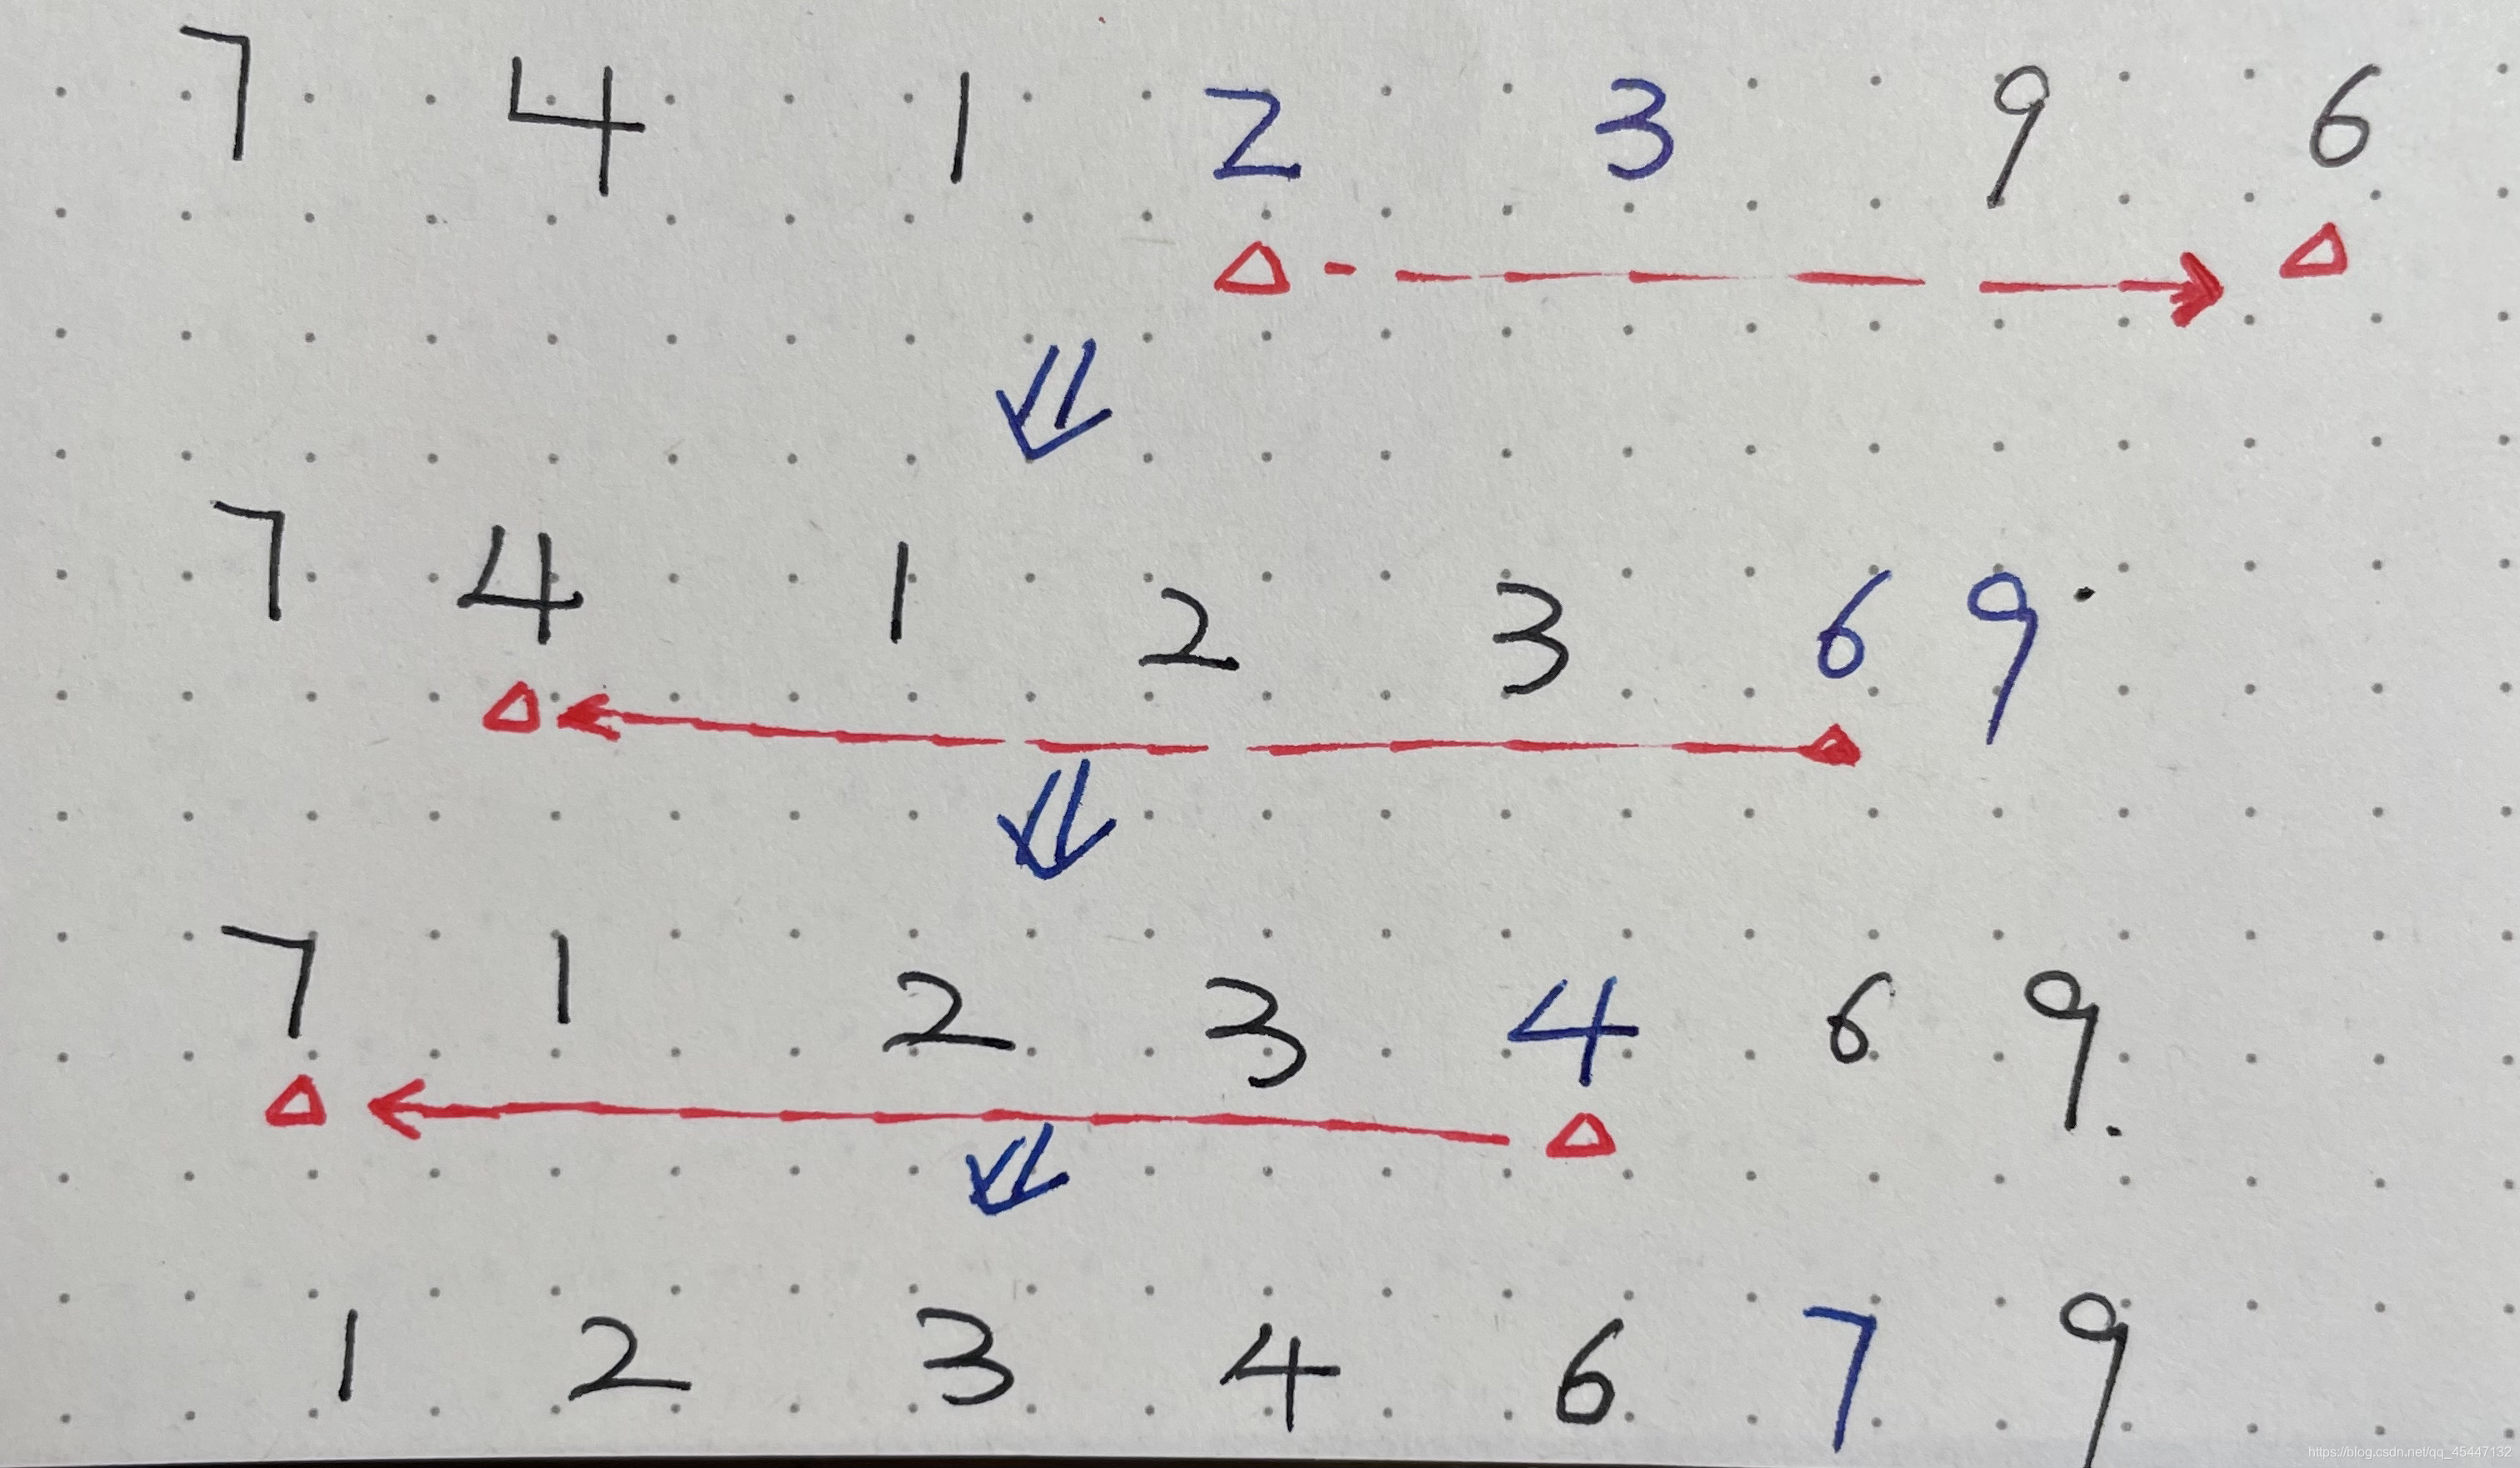 7 4 1 2 3 9 6
7 4 1 2 3 6 9
7 1 2 3 4 6 9.
1 2 3 4 6 7 9
https://blog.csdn.net/qq_45447132